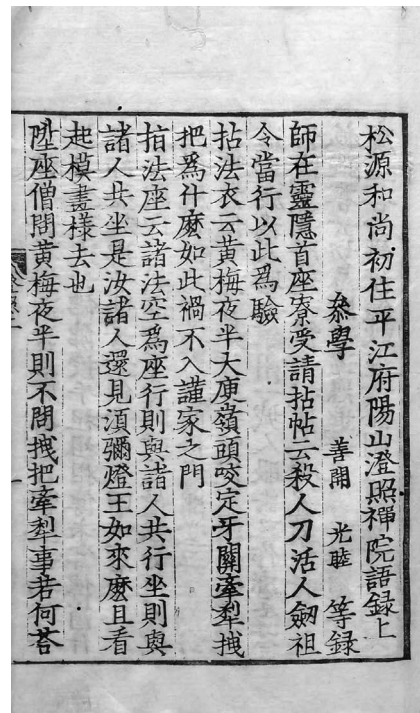 松源和尚初住平江府陽山澄照禪院語録上
叅學　善開　光睦　等録
師在靈隱首座寮受請拈帖云殺人刀活人劔祖
令當行以此爲驗
拈法衣云黄梅夜半大庾嶺頭咬定牙關牽犁拽
把爲什麽如此禍不入謹家之門
指法座云諸法空爲座行則與諸人共行坐則與
諸人共坐是汝諸人還見湏彌燈王如來麽且看
起模畫樣去也
陞座僧問黄梅夜半則不問拽把牽犁事若何荅